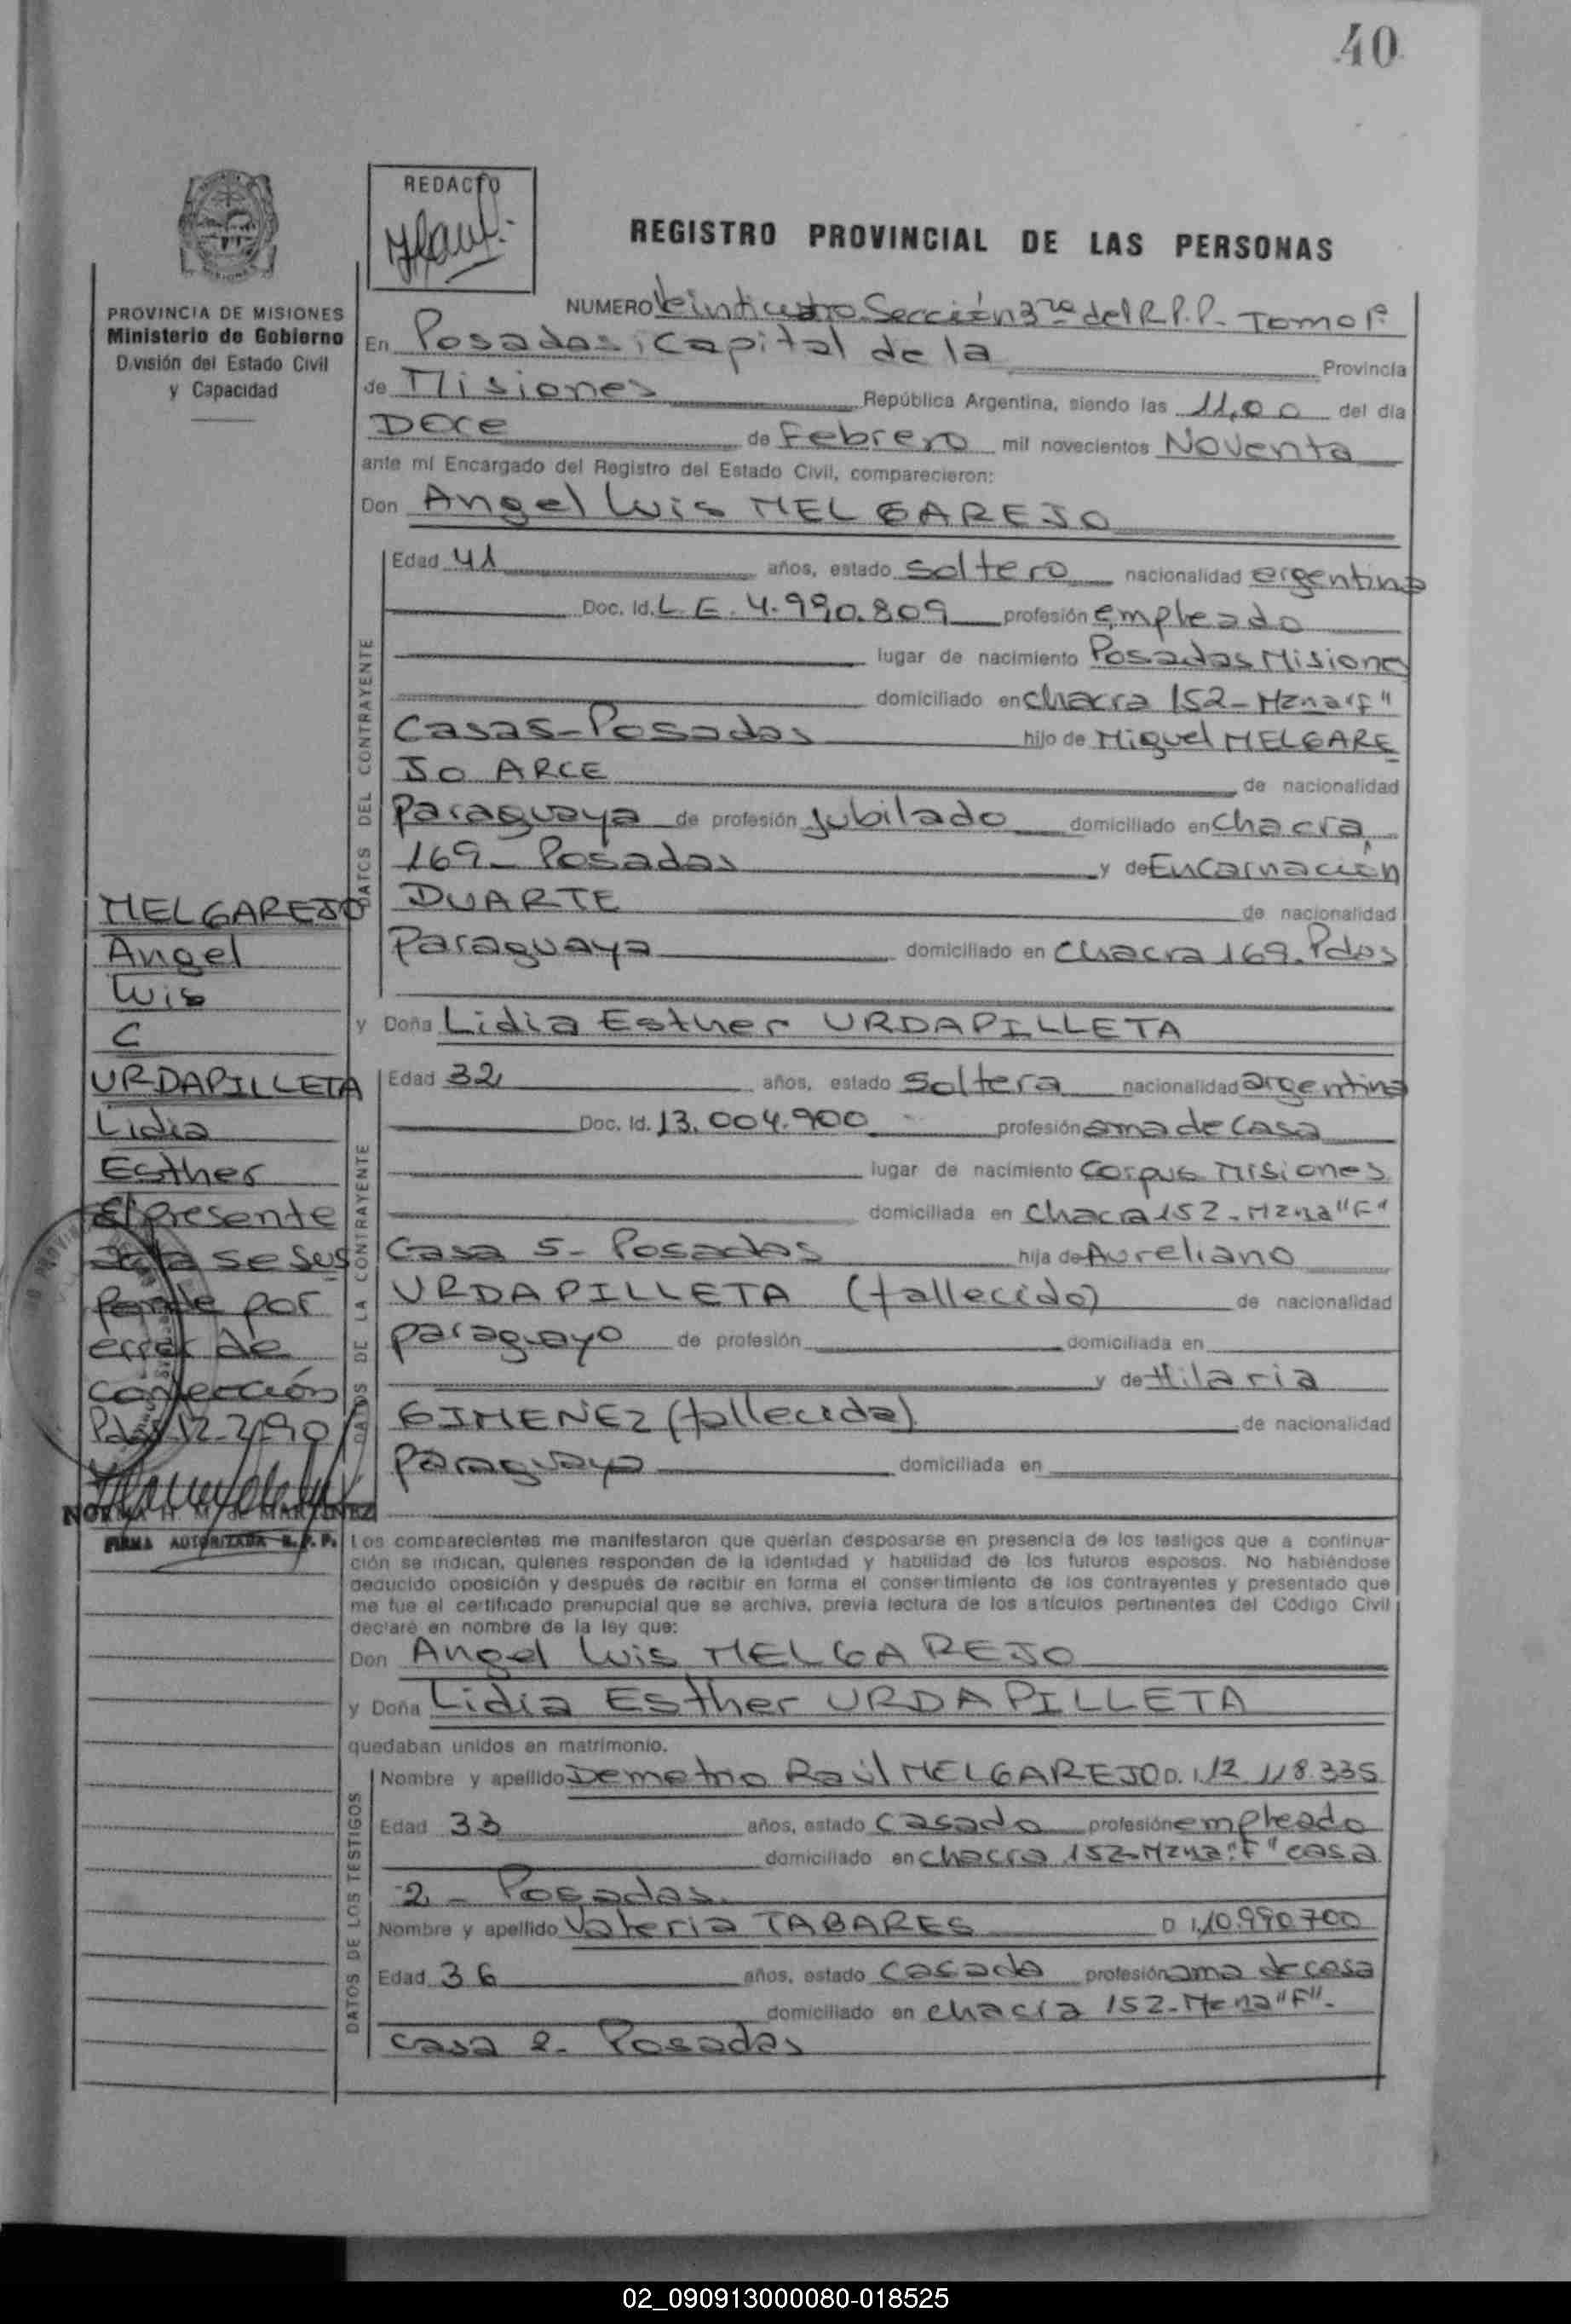 40
REDACTO
REGISTRO PROVINCIAL DE LAS PERSONAS
PROVINCIA DE MISIONES
Ministerio de Gobierno
División del Estado Civil
y Capacidad
NUMERO Veinticuatro Sección 3ra del R.P.P. - Tomo 1º
En Posadas, Capital de la Provincia
de Misiones República Argentina, siendo las 11,00 del día
Doce de Febrero mil novecientos Noventa
ante mí Encargado del Registro del Estado Civil, comparecieron:
Don Angel Luis MELGAREJO
DATOS DEL CONTRAYENTE
Edad 41 años, estado soltero nacionalidad argentina
Doc. Id. L.E. 4.990.809 profesión empleado
lugar de nacimiento Posadas Misiones
domiciliado en chacra 152 - Mzna "F"
Casa 5 - Posadas hijo de Miguel MELGARE
JO ARCE de nacionalidad
Paraguaya de profesión Jubilado domiciliado en Chacra
169 - Posadas y de Encarnación
DUARTE de nacionalidad
Paraguaya domiciliado en Chacra 169. Pdas
y Doña Lidia Esther URDAPILLETA
DATOS DE LA CONTRAYENTE
Edad 32 años, estado Soltera nacionalidad argentina
Doc. Id. 13.004.900 profesión ama de casa
lugar de nacimiento Corpus Misiones
domiciliada en Chacra 152 - Mzna "F"
Casa 5 - Posadas hija de Aureliano
URDAPILLETA (fallecido) de nacionalidad
paraguayo de profesión domiciliada en
y de Hilaria
GIMENEZ (fallecida) de nacionalidad
Paraguaya domiciliada en
MELGAREJO
Angel
Luis
C
URDAPILLETA
Lidia
Esther
El presente
acta se sus
pende por
error de
confección
Pdas 12-2-90
NORMA H. M. de MARTINEZ
FIRMA AUTORIZADA R.P.P.
Los comparecientes me manifestaron que querían desposarse en presencia de los testigos que a continua-
ción se indican, quienes responden de la identidad y habilidad de los futuros esposos. No habiéndose
deducido oposición y después de recibir en forma el consentimiento de los contrayentes y presentado que
me fue el certificado prenupcial que se archiva, previa lectura de los artículos pertinentes del Código Civil
declaré en nombre de la ley que:
Don Angel Luis MELGAREJO
y Doña Lidia Esther URDAPILLETA
quedaban unidos en matrimonio.
DATOS DE LOS TESTIGOS
Nombre y apellido Demetrio Raúl MELGAREJO D.I. 12.118.335
Edad 33 años, estado casado profesión empleado
domiciliado en chacra 152 - Mzna "F" casa
2 - Posadas.
Nombre y apellido Valeria TABARES D.I. 10.990.700
Edad 36 años, estado casada profesión ama de casa
domiciliado en chacra 152 - Mzna "F".
casa 2 - Posadas
02_090913000080-018525